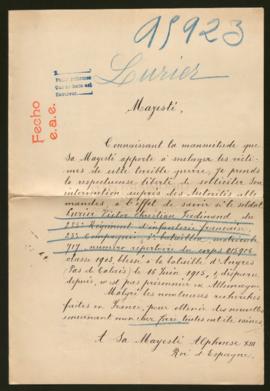 95923
Lurier
Fecho
e.a.e.
Majesté,
Connaissant la mansuetude que
Sa Majesté apporte à soulager les victi-
mes de cette terrible guerre, je prends
la respectueuse liberté de solliciter Son
intervention auprès des Autorités alle-
mandes, à l'effet de savoir si le soldat
Lurier Victor Christian Ferdinand, du
Régiment d'infanterie française,
Compagnie, matricule
717, numéro répertoire du corps
classe 1903, blessé à la bataille d'Angres
(Pas de Calais) le 16 Juin 1915, & disparu
depuis, n'est pas prisonnier en Allemagne.
Malgré les nombreuses recherches
faites en France, pour obtenir des nouvelles
concernant mon cher frère, toutes ont été vaines.
A Sa Majesté Alphonse XIII
Roi d'Espagne.